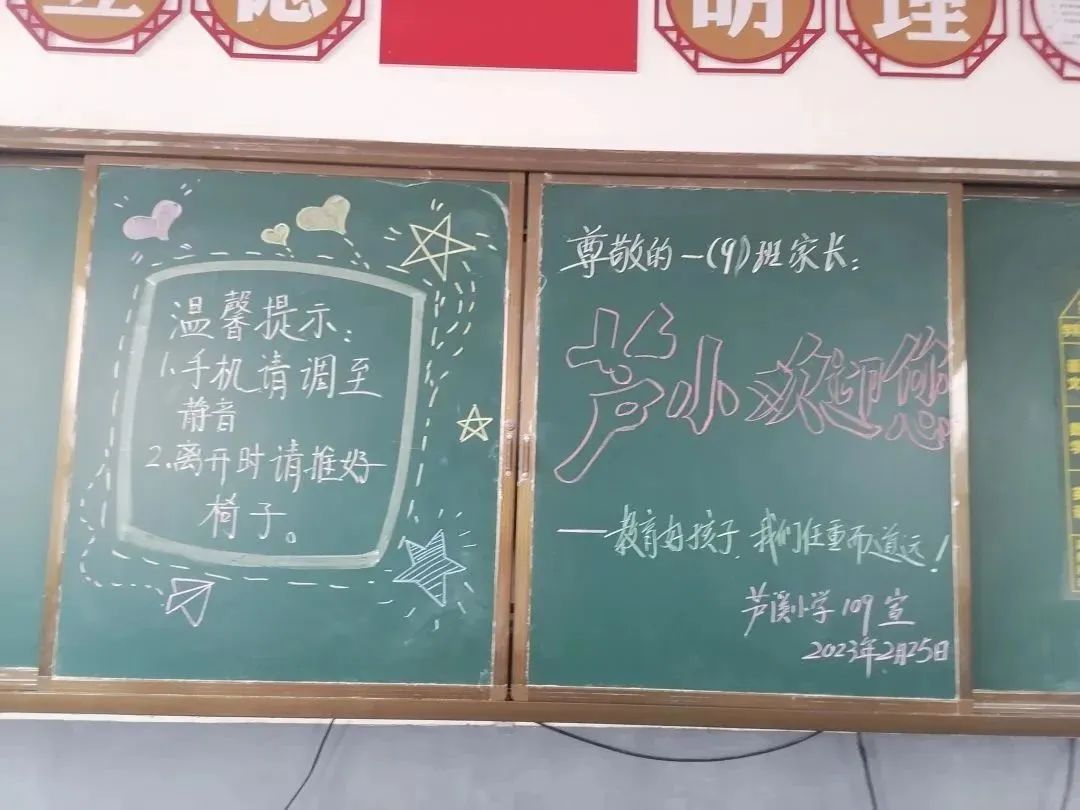 立德
明理
温馨提示:
1.手机请调至
静音
2.离开时请推好
椅子。
尊敬的一(9)班家长:
芦小欢迎您
——教育好孩子,我们任重而道远!
芦溪小学109宣
2023年2月25日